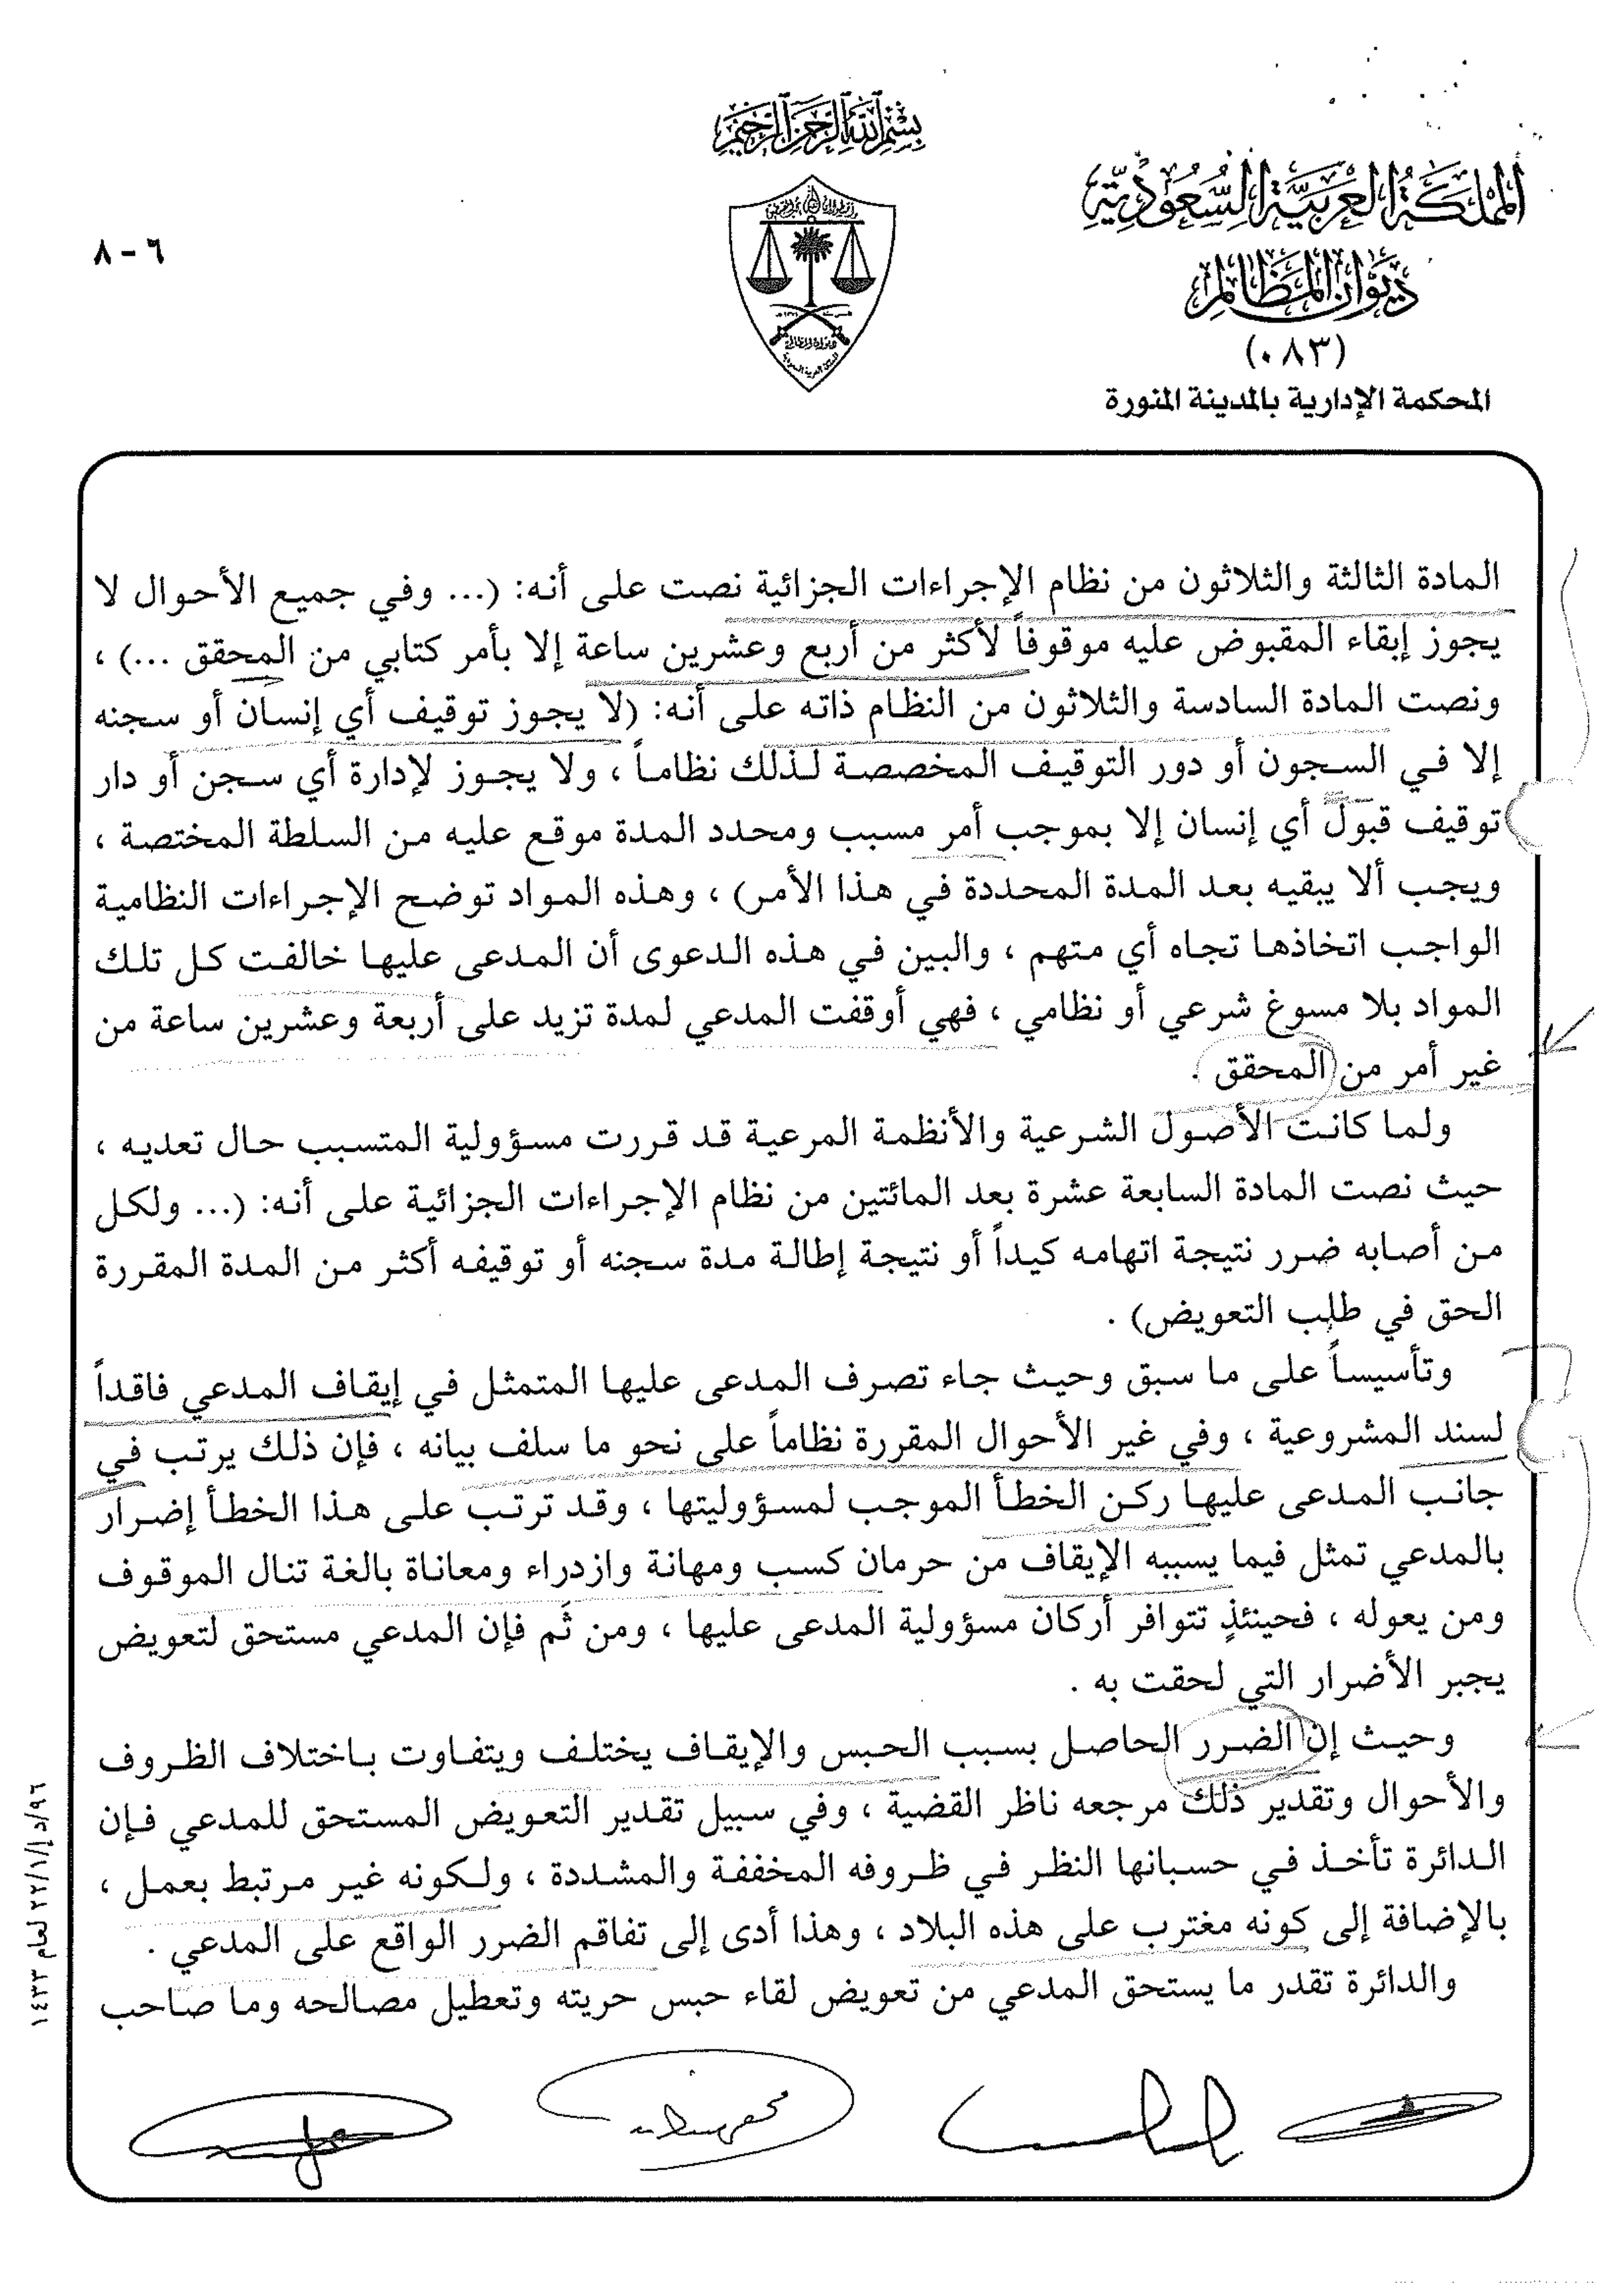 بسم الله الرحمن الرحيم
المملكة العربية السعودية
ديوان المظالم
(٠٨٣)
المحكمة الإدارية بالمدينة المنورة
٦ - ٨
المادة الثالثة والثلاثون من نظام الإجراءات الجزائية نصت على أنه: (... وفي جميع الأحوال لا
يجوز إبقاء المقبوض عليه موقوفاً لأكثر من أربع وعشرين ساعة إلا بأمر كتابي من المحقق ...) ،
ونصت المادة السادسة والثلاثون من النظام ذاته على أنه: (لا يجوز توقيف أي إنسان أو سجنه
إلا في السجون أو دور التوقيف المخصصة لذلك نظاماً ، ولا يجوز لإدارة أي سجن أو دار
توقيف قبول أي إنسان إلا بموجب أمر مسبب ومحدد المدة موقع عليه من السلطة المختصة ،
ويجب ألا يبقيه بعد المدة المحددة في هذا الأمر) ، وهذه المواد توضح الإجراءات النظامية
الواجب اتخاذها تجاه أي متهم ، والبين في هذه الدعوى أن المدعى عليها خالفت كل تلك
المواد بلا مسوغ شرعي أو نظامي ، فهي أوقفت المدعي لمدة تزيد على أربعة وعشرين ساعة من
غير أمر من المحقق .
ولما كانت الأصول الشرعية والأنظمة المرعية قد قررت مسؤولية المتسبب حال تعديه ،
حيث نصت المادة السابعة عشرة بعد المائتين من نظام الإجراءات الجزائية على أنه: (... ولكل
من أصابه ضرر نتيجة اتهامه كيداً أو نتيجة إطالة مدة سجنه أو توقيفه أكثر من المدة المقررة
الحق في طلب التعويض) .
وتأسيساً على ما سبق وحيث جاء تصرف المدعى عليها المتمثل في إيقاف المدعي فاقداً
لسند المشروعية ، وفي غير الأحوال المقررة نظاماً على نحو ما سلف بيانه ، فإن ذلك يرتب في
جانب المدعى عليها ركن الخطأ الموجب لمسؤوليتها ، وقد ترتب على هذا الخطأ إضرار
بالمدعي تمثل فيما يسببه الإيقاف من حرمان كسب ومهانة وازدراء ومعاناة بالغة تنال الموقوف
ومن يعوله ، فحينئذٍ تتوافر أركان مسؤولية المدعى عليها ، ومن ثَم فإن المدعي مستحق لتعويض
يجبر الأضرار التي لحقت به .
وحيث إن الضرر الحاصل بسبب الحبس والإيقاف يختلف ويتفاوت باختلاف الظروف
والأحوال وتقدير ذلك مرجعه ناظر القضية ، وفي سبيل تقدير التعويض المستحق للمدعي فإن
الدائرة تأخذ في حسبانها النظر في ظروفه المخففة والمشددة ، ولكونه غير مرتبط بعمل ،
بالإضافة إلى كونه مغترب على هذه البلاد ، وهذا أدى إلى تفاقم الضرر الواقع على المدعي .
والدائرة تقدر ما يستحق المدعي من تعويض لقاء حبس حريته وتعطيل مصالحه وما صاحب
٩٦/د/إ/٢٢/١ لعام ١٤٣٣